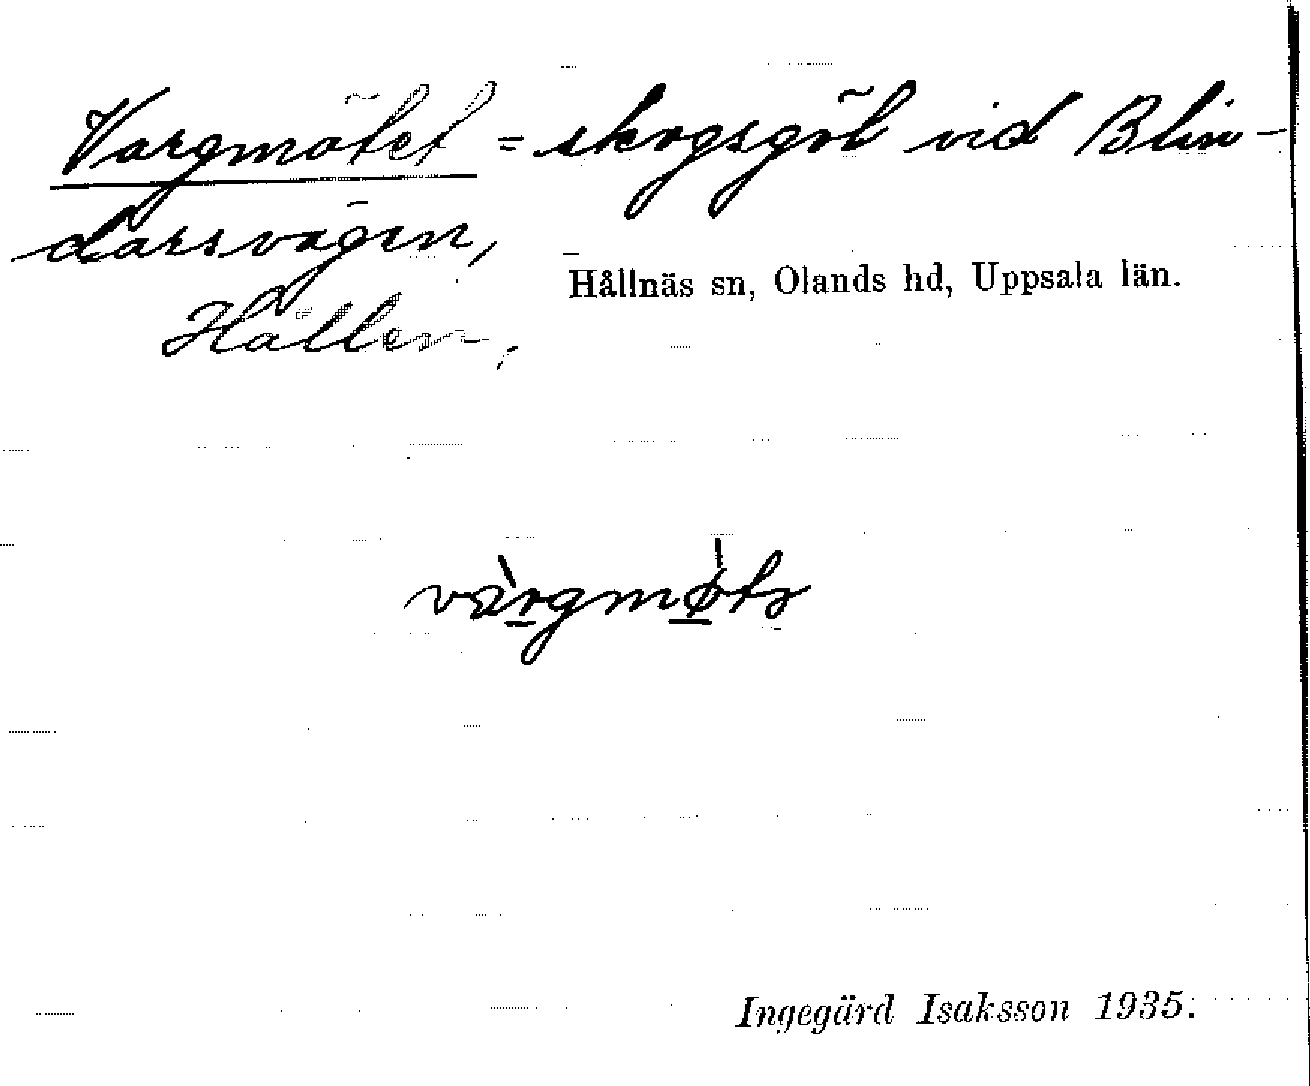 Vargmötet = skogsgöl vid Blin-
darsvägen,
Hållnäs sn, Olands hd, Uppsala län.
Hällen,
vàrgmø̀tə
Ingegärd Isaksson 1935.